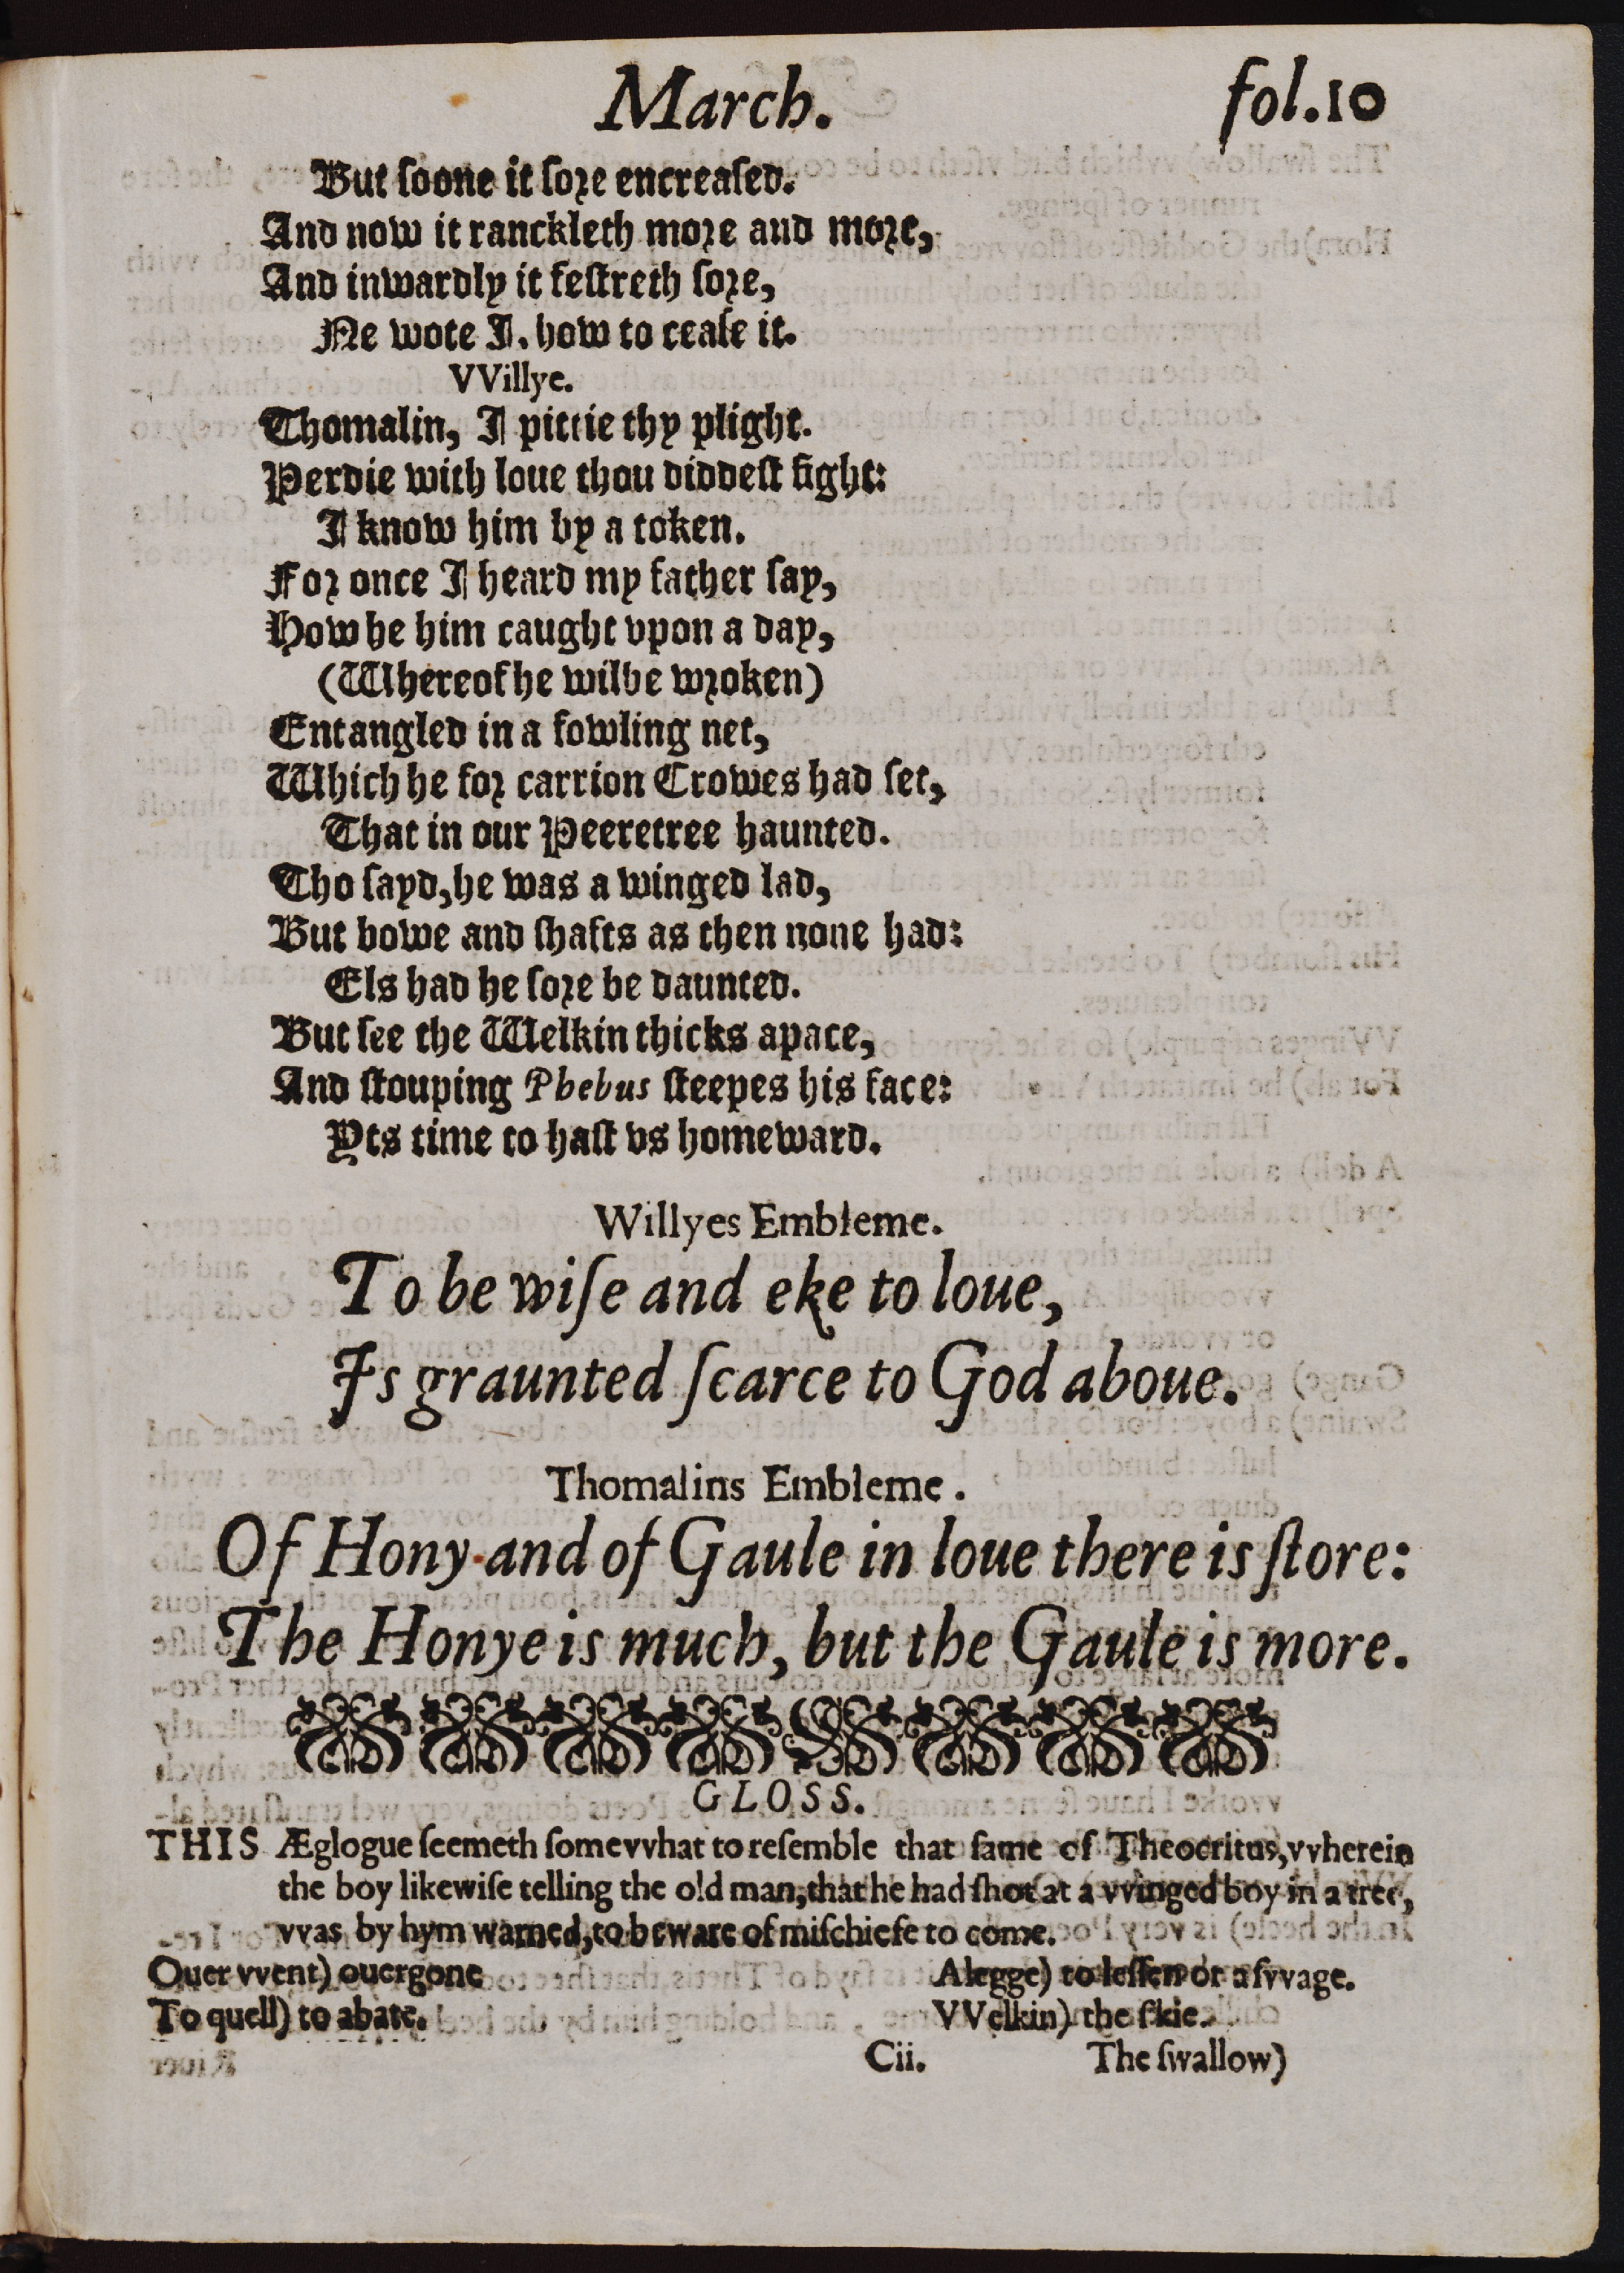 March.
fol.10
But ſoone it ſore encreaſed.
And now it ranckleth more aud more,
And inwardly it feſtreth ſore,
Ne wote I, how to ceaſe it.
VVillye.
Thomalin, I pittie thy plight.
Perdie with loue thou diddeſt fight:
I know him by a token.
For once I heard my father ſay,
How he him caught vpon a day,
(Whereof he wilbe wroken)
Entangled in a fowling net,
Which he for carrion Crowes had ſet,
That in our Peeretree haunted.
Tho ſayd, he was a winged lad,
But bowe and ſhafts as then none had:
Els had he ſore be daunted.
But ſee the Welkin thicks apace,
And ſtouping Phebus ſteepes his face:
Yts time to haſt vs homeward.
Willyes Embleme.
To be wiſe and eke to loue,
Is graunted ſcarce to God aboue.
Thomalins Embleme.
Of Hony and of Gaule in loue there is ſtore:
The Honye is much, but the Gaule is more.
GLOSS.
THIS Æglogue ſeemeth ſomevvhat to reſemble that ſame of Theocritus, vvherein
the boy likewiſe telling the old man, that he had ſhot at a vvinged boy in a tree,
vvas by hym warned, to beware of miſchiefe to come.
Ouer vvent) ouergone
Alegge) to leſſen or aſvvage.
To quell) to abate.
VVelkin) the ſkie.
Cii.
The ſwallow)